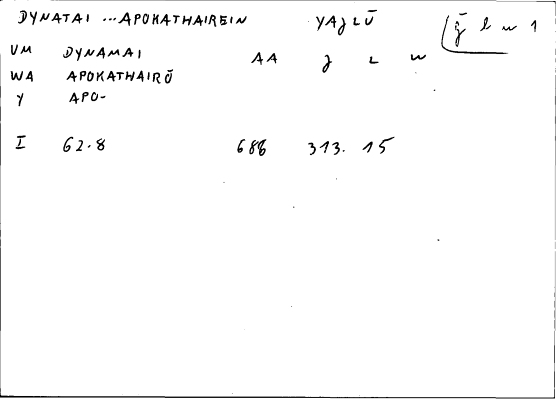 DYNATAI ... APOKATHAIREIN YAJLŪ ğ l w 1
VM DYNAMAI AA J L W
WA APOKATHAIRŪ
Y APO-
I 62.8 686 313. 15